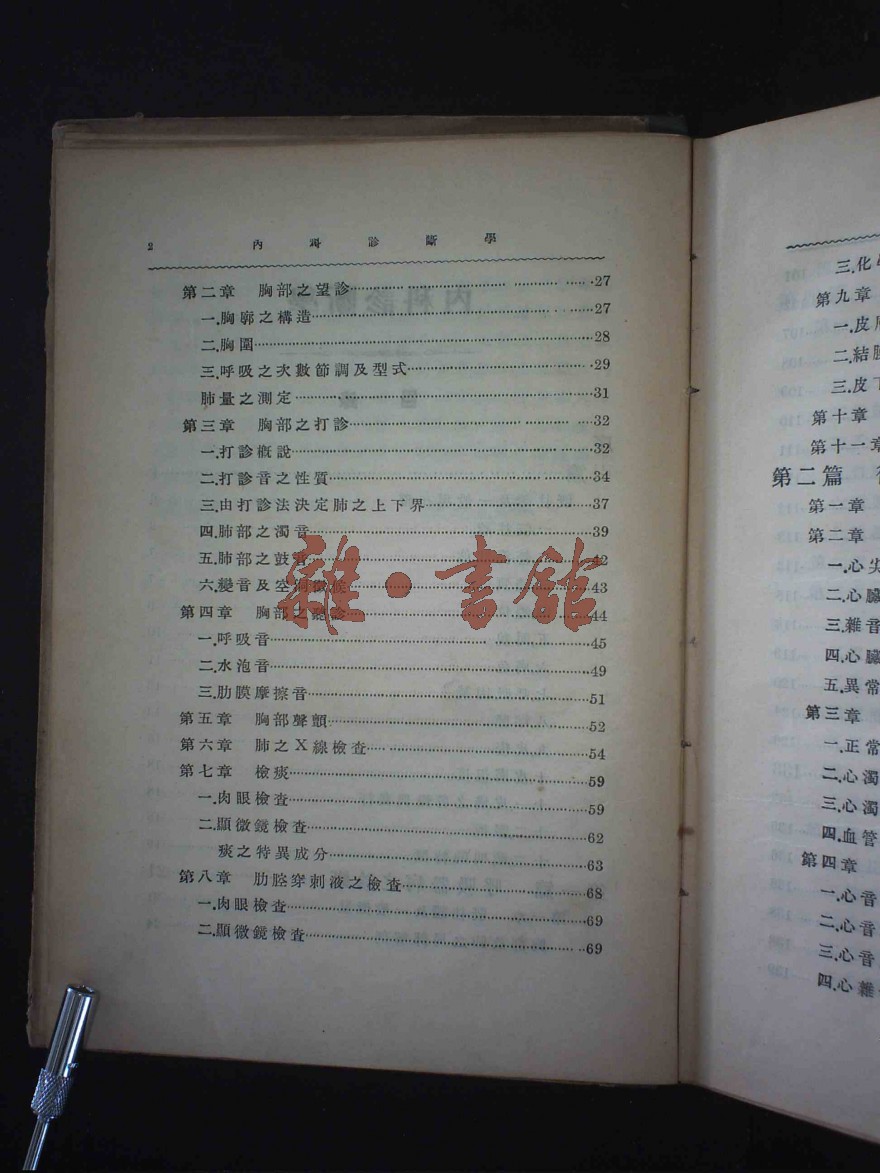 2 內科診斷學
第二章 胸部之望診 27
一.胸廓之構造 27
二.胸圍 28
三.呼吸之次數節調及型式 29
肺量之測定 31
第三章 胸部之打診 32
一.打診概說 32
二.打診音之性質 34
三.由打診法決定肺之上下界 37
四.肺部之濁音 39
五.肺部之鼓音 42
六.變音及空洞徵候 43
第四章 胸部之聽診 44
一.呼吸音 45
二.水泡音 49
三.肋膜摩擦音 51
第五章 胸部聲顫 52
第六章 肺之X線檢查 54
第七章 檢痰 59
一.肉眼檢查 59
二.顯微鏡檢查 62
痰之特異成分 63
第八章 肋腔穿刺液之檢查 68
一.肉眼檢查 69
二.顯微鏡檢查 69
雜·書館
三.化
第九章
一.皮
二.結
三.皮下
第十章
第十一章
第二篇
第一章
第二章
一.心尖
二.心臟
三.雜音
四.心臟
五.異常
第三章
一.正常
二.心濁
三.心濁
四.血管
第四章
一.心音
二.心音
三.心音
四.心雜